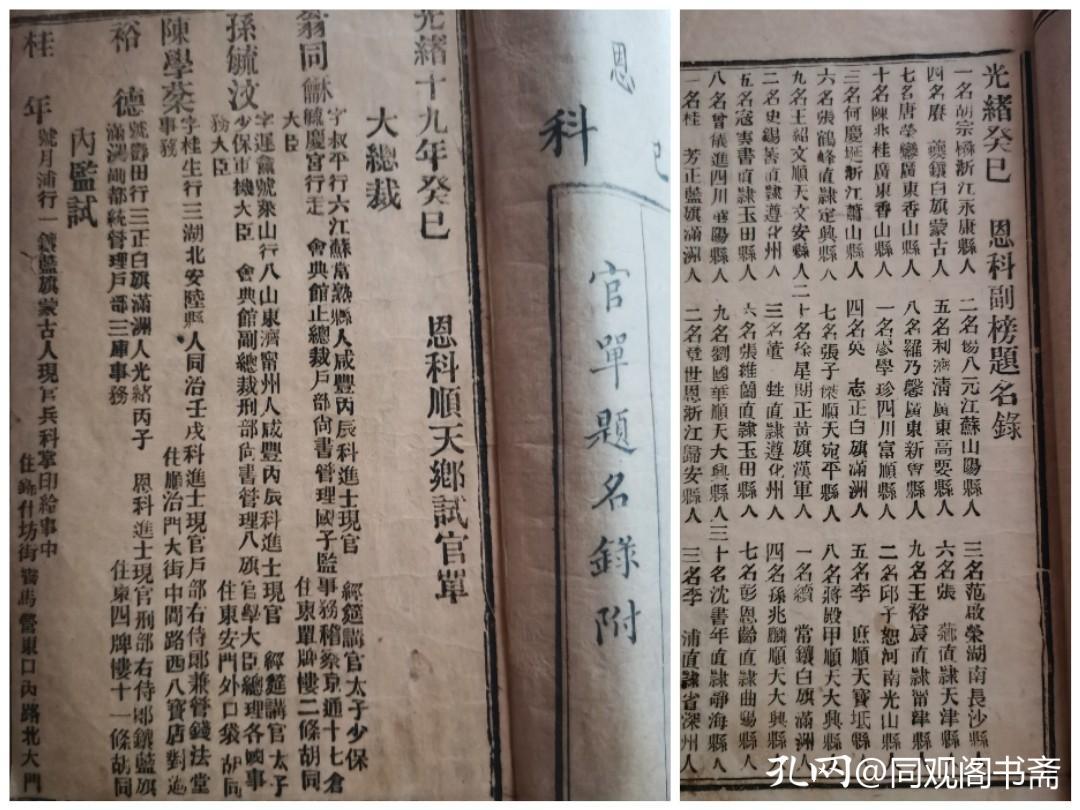 恩
科
巳
官單題名錄附
光緒十九年癸巳 恩科順天鄉試官單
大總裁
翁同龢 字叔平行六江蘇常熟縣人咸豐丙辰科進士現官 經筵講官太子少保
毓慶宮行走 會典館正總裁戶部尚書管理國子監事務稽察京通十七倉
大臣 住東單牌樓二條胡同
孫毓汶 字遲菴號萊山行八山東濟甯州人咸豐丙辰科進士現官 經筵講官太子
少保軍機大臣 會典館副總裁刑部尚書管理八旗官學大臣總理各國事
務大臣 住東安門外口袋胡同
陳學棻 字桂生行三湖北安陸縣人同治壬戌科進士現官戶部右侍郎兼管錢法堂
事務 住順治門大街中間路西八寶店對過
裕 德 號壽田行三正白旗滿洲人光緒丙子 恩科進士現官刑部右侍郎鑲藍旗
滿洲副都統管理戶部三庫事務 住東四牌樓十一條胡同
內監試
桂 年 號月浦行一鑲藍旗蒙古人現官兵科掌印給事中
住錦什坊街養馬營東口內路北大門
光緒癸巳 恩科副榜題名錄
一名胡宗楙浙江永康縣人 二名楊八元江蘇山陽縣人 三名范啟榮湖南長沙縣人
四名賡 鑲白旗蒙古人 五名利濟清廣東高要縣人 六名張 直隸天津縣人
七名唐榮鑾廣東香山縣人 八名羅乃馨廣東新會縣人 九名王裕宸直隸甯津縣人
十名陳兆桂廣東香山縣人 一名廖學珍四川富順縣人 二名邱子恕河南光山縣人
三名何慶埏浙江蕭山縣人 四名英 志正白旗滿洲人 五名李 庶順天寶坻縣人
六名張鶴峰直隸定興縣人 七名張子傑順天宛平縣人 八名蔣殿甲順天大興縣人
九名王紹文順天文安縣人 二十名徐星期正黃旗漢軍人 一名續 當鑲白旗滿洲人
二名史錫善直隸遵化州人 三名董 甡直隸遵化州人 四名孫兆麟順天大興縣人
五名寇 書直隸玉田縣人 六名張維蘭直隸玉田縣人 七名彭恩齡直隸曲陽縣人
八名曾儀進四川華陽縣人 九名劉國華順天大興縣人 三十名沈書年直隸靜海縣人
一名桂 芳正藍旗滿洲人 二名章世恩浙江歸安縣人 三名李 浦直隸省深州人
孔网@同观阁书斋